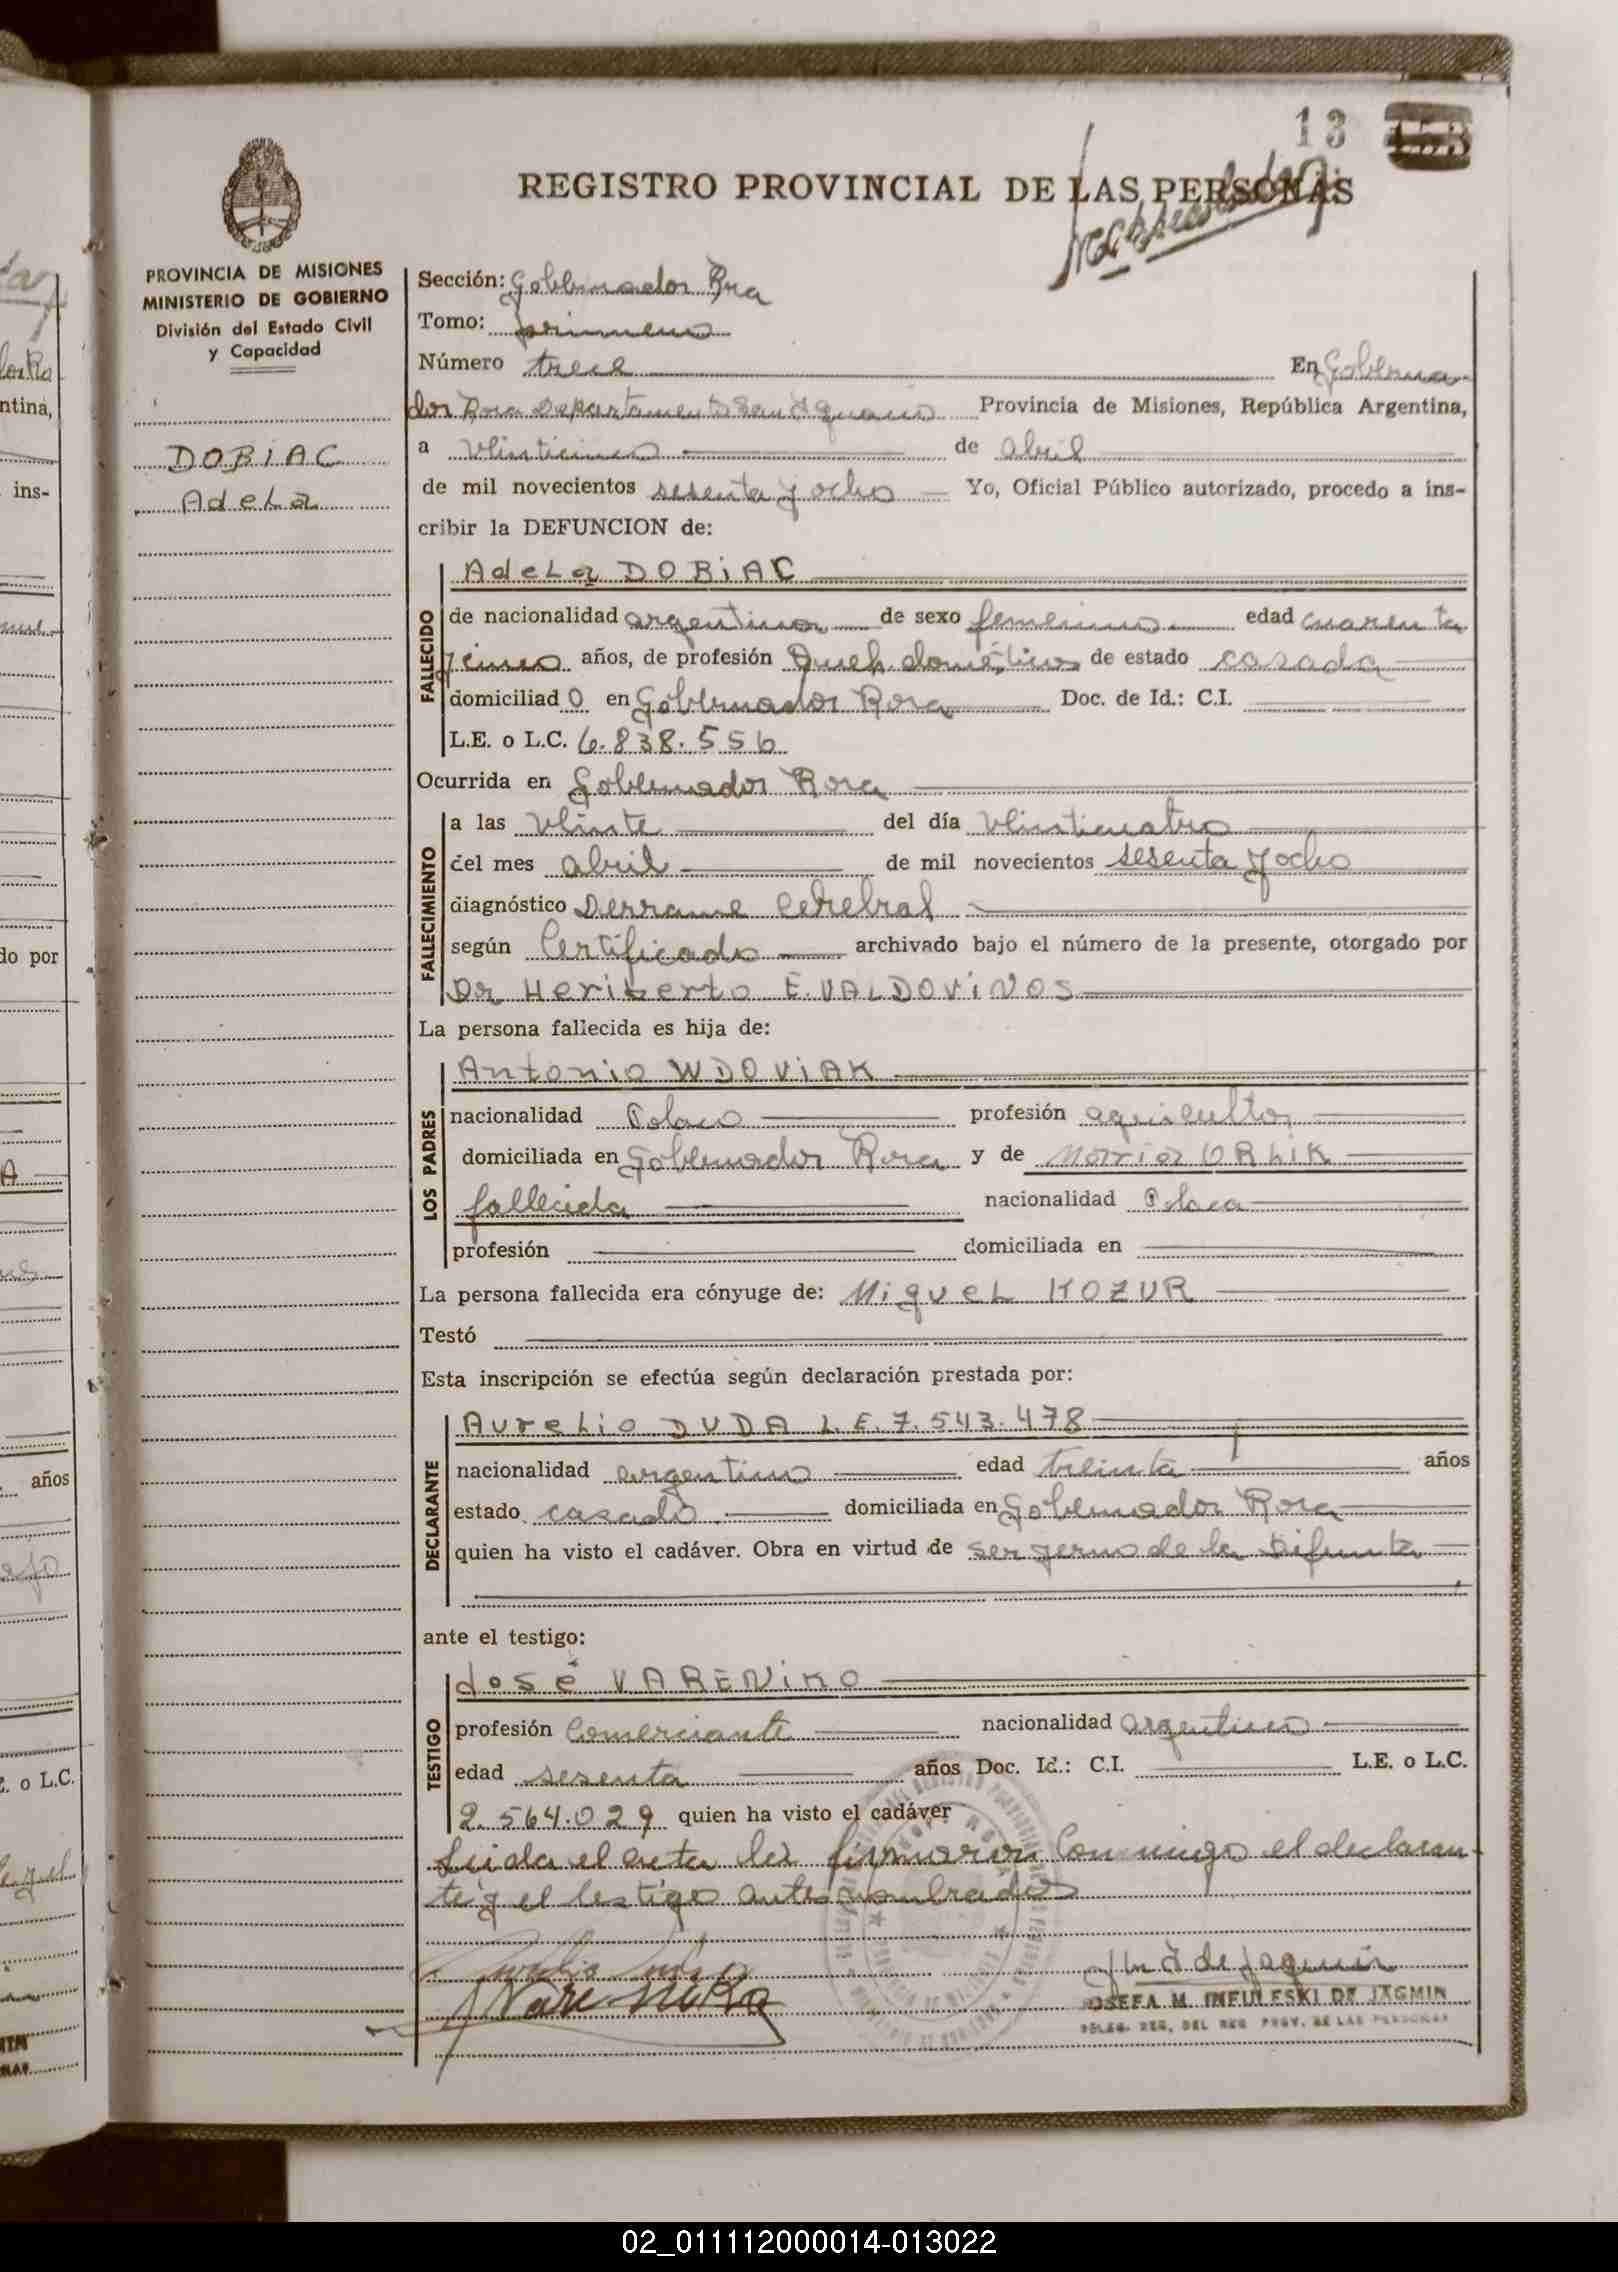 13
REGISTRO PROVINCIAL DE LAS PERSONAS
PROVINCIA DE MISIONES
MINISTERIO DE GOBIERNO
División del Estado Civil
y Capacidad
DOBIAC
Adela
Sección: Gobernador Roca
Tomo: primero
Número trece En Goberna-
dor Roca Departamento San Ignacio Provincia de Misiones, República Argentina,
a veinticinco de abril
de mil novecientos sesenta y ocho Yo, Oficial Público autorizado, procedo a ins-
cribir la DEFUNCION de:
FALLECIDO
Adela DOBIAC
de nacionalidad argentina de sexo femenino edad cuarenta
y cinco años, de profesión Queh. domésticos de estado casada
domiciliad o en Gobernador Roca Doc. de Id.: C.I.
L.E. o L.C. 6.838.556
Ocurrida en Gobernador Roca
FALLECIMIENTO
a las veinte del día veinticuatro
del mes abril de mil novecientos sesenta y ocho
diagnóstico Derrame Cerebral
según Certificado archivado bajo el número de la presente, otorgado por
Dr Heriberto E. VALDOVINOS
La persona fallecida es hija de:
LOS PADRES
Antonio WDOVIAK
nacionalidad Polaco profesión agricultor
domiciliada en Gobernador Roca y de Maria ORLIK
fallecida nacionalidad Polaca
profesión domiciliada en
La persona fallecida era cónyuge de: Miguel KOZUR
Testó
Esta inscripción se efectúa según declaración prestada por:
DECLARANTE
Aurelio DUDA L.E. 7.543.478
nacionalidad argentino edad treinta años
estado casado domiciliada en Gobernador Roca
quien ha visto el cadáver. Obra en virtud de ser yerno de la difunta
ante el testigo:
TESTIGO
José VARENIKO
profesión Comerciante nacionalidad argentino
edad sesenta años Doc. Id.: C.I. L.E. o L.C.
2.564.029 quien ha visto el cadáver
Leida el acta la firmaron conmigo el declaran-
te y el testigo antes nombrados
JOSEFA M. INFULESKI DE JAGMIN
DELEG. REG. DEL REG. PROV. DE LAS PERSONAS
02_011112000014-013022